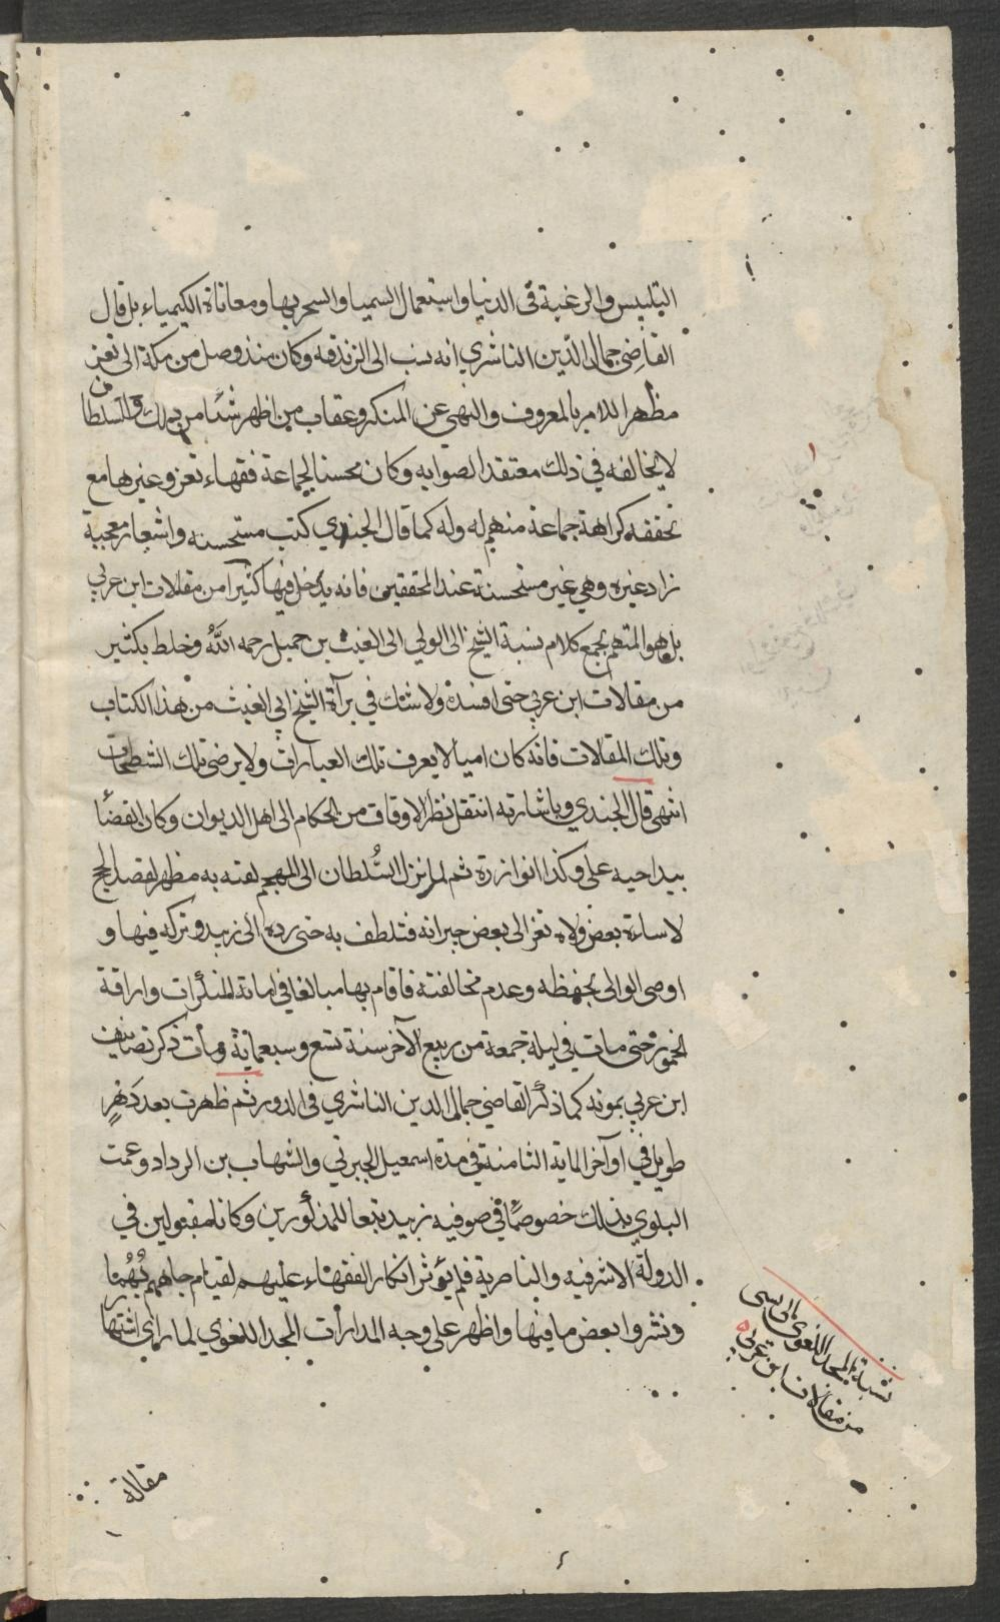 التلبيس والرغبة في الدنيا واستعمال السميا والسحر بها ومعاناة الكيمياء بل قال
القاضي جمال الدين الناشري انه نسب الى الزندقه وكان منذ وصل من مكة الى تعز
مظهرا للامر بالمعروف والنهي عن المنكر وعقاب من اظهر شيئا من ذلك والسلطان
لا يخالفه في ذلك معتقدا لصوابه وكان محسنا لجماعة فقهاء تعز وغيرها مع
تحققه كراهة جماعة منهم له وله كما قال الجندي كتب مستحسنه واشعار معجبة
زاد غيره وهي غير مستحسنة عند المحققين فانه يدخل فيها كثيرا من مقالات ابن عربي
بل هو المتهم بجمع كلام نسبة الشيخ الولي ابى الغيث بن جميل رحمه الله وخلط بكثير
من مقالات ابن عربي حتى افسده ولا شك في برآة الشيخ ابي الغيث من هذا الكتاب
وتلك المقالات فانه كان اميا لا يعرف تلك العبارات ولا يرضى تلك الشطحات
انتهى قال الجندي وباشارته انتقل نظر الاوقاف من الحكام الى اهل الديوان وكان القضا
بيد اخيه على وكذا الوازرة ثم لما نزل السُلطان الى المهجم لقته به مظهرا لقصد الحج
لاساءة بعض ولاه تعز الى بعض جيرانه فتلطف به حتى رده الى زبيد وتركه فيها و
اوصى الوالى بحفظه وعدم مخالفته فاقام بها مبالغا في اماتة المنكرات واراقة
الخمور حتى مات في ليلة جمعة من ربيع الآخر سنة تسع وسبعماية وماتت ذكر تصانيف
ابن عربي بموته كما ذكر القاضي جمال الدين الناشري في الدور ثم ظهرت بعد دَهْرٍ
طويل في اوآخر الماية الثامنة في مدة اسمعيل الجبرتي والشهاب بن الرداد وعمت
البلوى بذلك خصوصًا في صوفية زبيد تبعا للمذكورين وكانا مقبولين في
الدولة الاشرفيه والناصرية فلم يؤثر انكار الفقهاء عليهم لقيام جاههم بهما
ونشروا بعض ما فيها واظهر على وجه المدارات المجد اللغوي لما راى اشتهار
نسبة المجد اللغوي الى شىء
من مقالات ابن عربي
مقالة